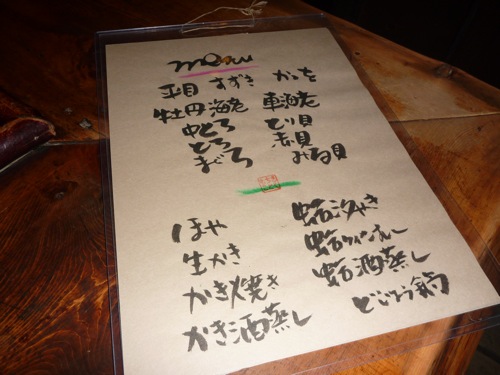 menu
平目 すずき かつを
牡丹海老 車海老
中とろ とり貝
とろ 赤貝
まぐろ みる貝
ほや 蛤汐やき
生かき 蛤
かき焼き 蛤酒蒸し
かき酒蒸し どじょう鍋